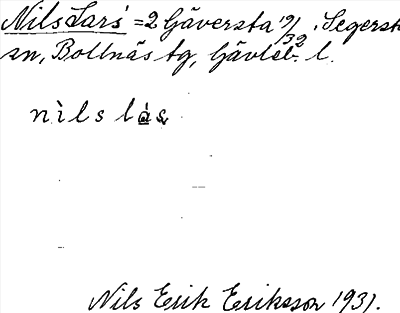 Nils Lars' =2 Gäversta 19/32. Segersta
sn, Bollnäs tg, Gävleb. l.
nìls lás
Nils Erik Eriksson 1931.